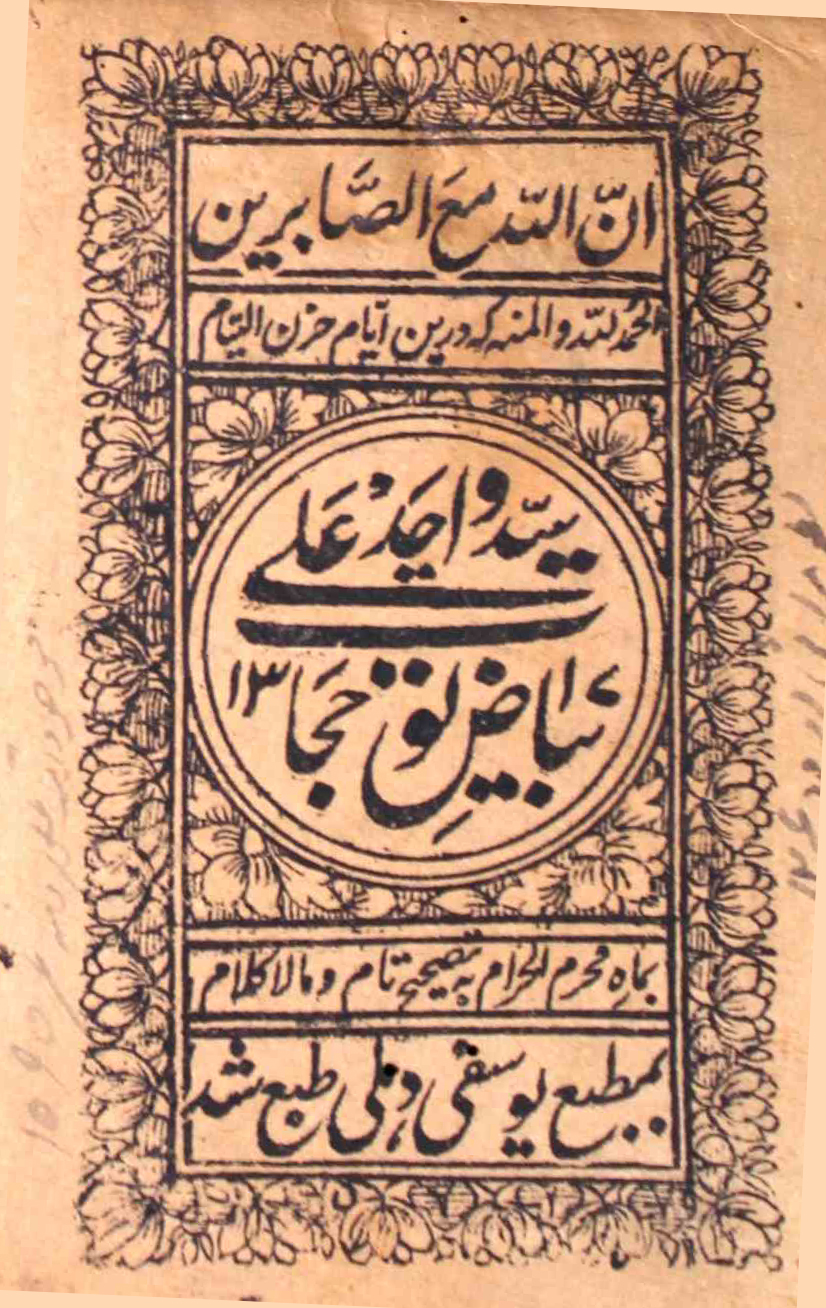 انّ اللہ مَعَ الصَّابرین
الحمدُ للہ والمنہ کہ درین ایّام حزن التیام
سیّد واجد علی
بیاضِ نوحجات
۱۳۱۷
بماہ محرم الحرام بہ تصحیح تام و مالا کلام
بمطبع یوسفی دہلی طبع شد